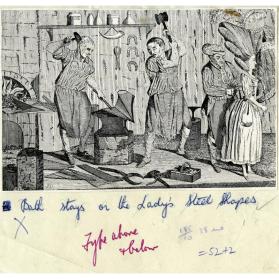 Bath stays or the Lady's Steel Shapes
Type above
& below
= 52 + 2